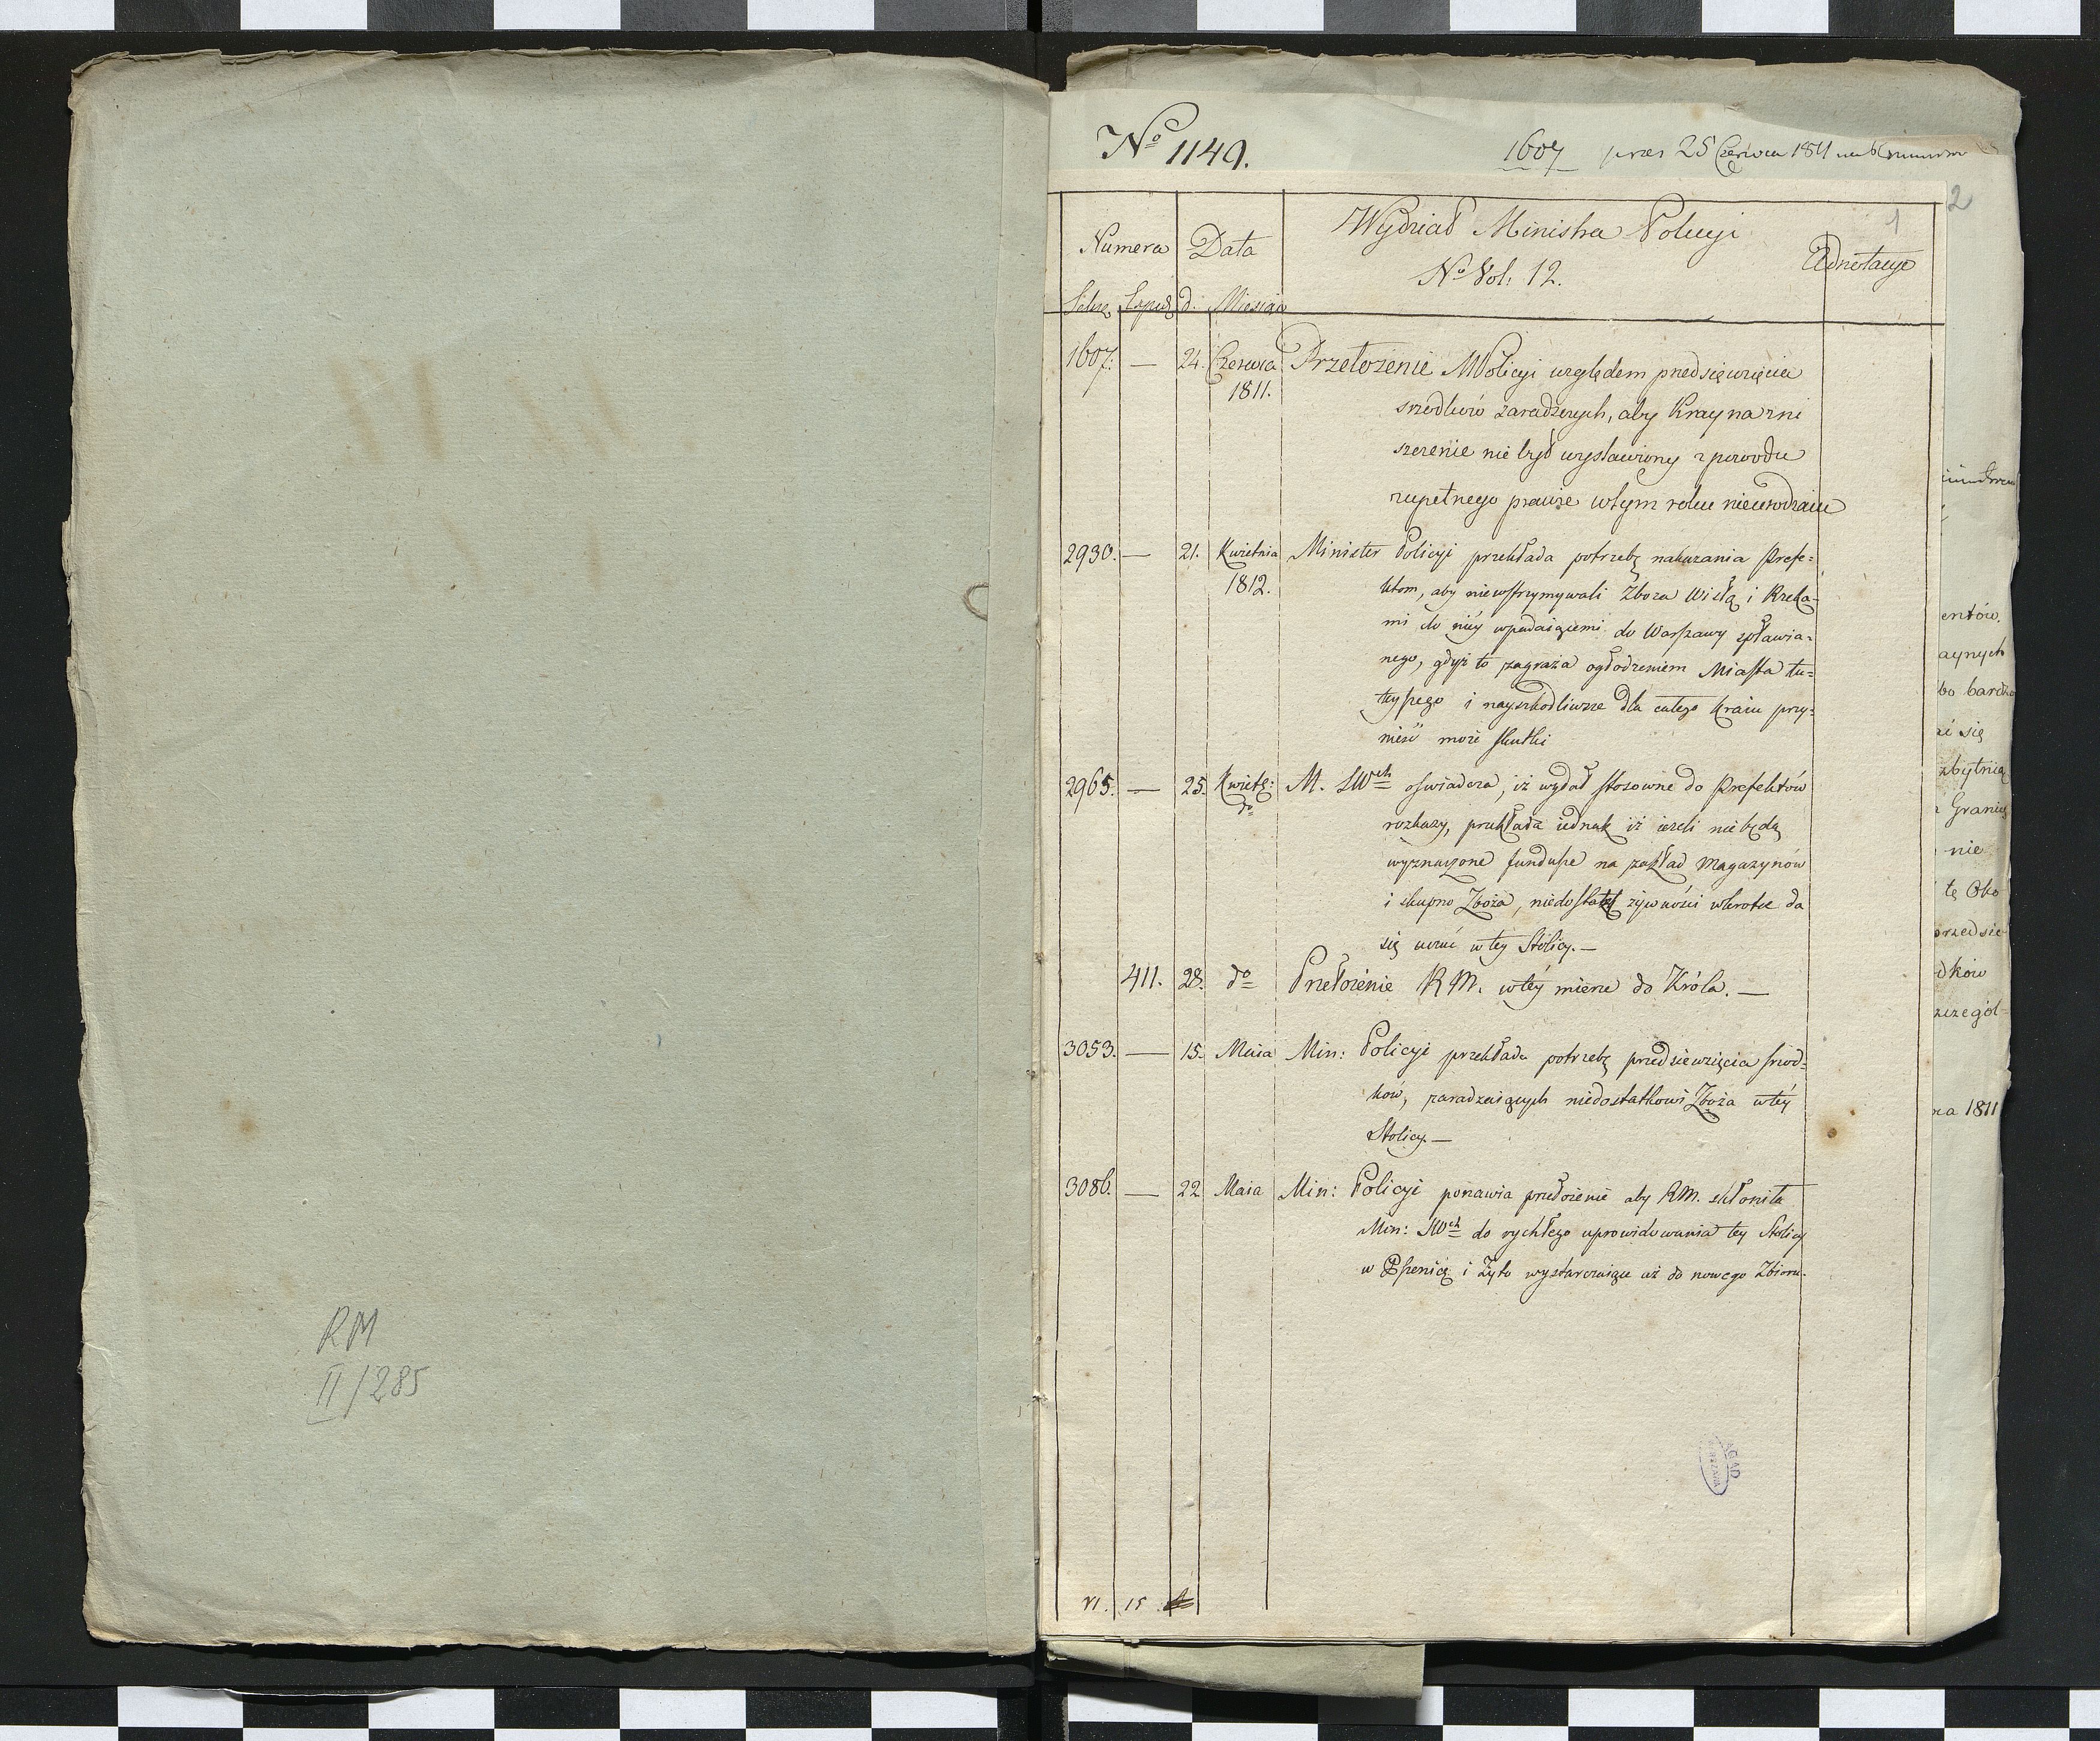 RM
II/285
Nº 1149.
1607 prez 25 Czerwca 1811
2
1
Numera Data Wydział Ministra Policyi Adnotacye
Nº Vol: 12.
d. Miesiąc
1607. — 24. Czerwca 1811. Przełożenie MPolicyi względem przedsięwzięcia
srzodków zaradczych, aby Kray na zni
szczenie nie był wystawiony z powodu
zupełnego prawie w tym roku nieurodzaiu
2930. — 21. Kwietnia 1812. Minister Policyi przekłada potrzebę nakazania Prefe=
ktom, aby niewstrzymywali Zboza Wisłą i Rzeka-
mi do niey wpadaiącemi do Warszawy spławia-
nego, gdyż to zagraża ogłodzeniem Miasta tu=
teyszego i nayszkodliwsze dla całego Kraiu przy=
nieść może skutki
2965. — 25. Kwiet: dº M. SWch oswiadcza, iż wydał stosowne do Prefektów
rozkazy, przekłada iednak iż ieżeli nie będą
wyznaczone fundusze na zakład Magazynów
i skupno Zboża, niedostatek żywności wkrotce da
się uczuć w tey Stolicy. —
411. 28. dº Przełożenie RM. w tey mierze do Króla. —
3053. — 15. Maia Min: Policyi przekłada potrzebę przedsiewzięcia srzod=
ków, zaradzaiących niedostatkowi Zboża w tey
Stolicy. —
3086. — 22 Maia Min: Policyi ponawia przełożenie aby RM. skłoniła
Min: SWch do rychłego uprowidowania tey Stolicy
w Pszenicę i Żyto wystarczaiące aż do nowego Zbioru.
VI. 15
AGAD
WARSZAWA
entów,
aynych
bo bardzo
zi się
zbytnią
Granic
nie
tę Oko
przedsię
dków
szczegól=
ca 1811